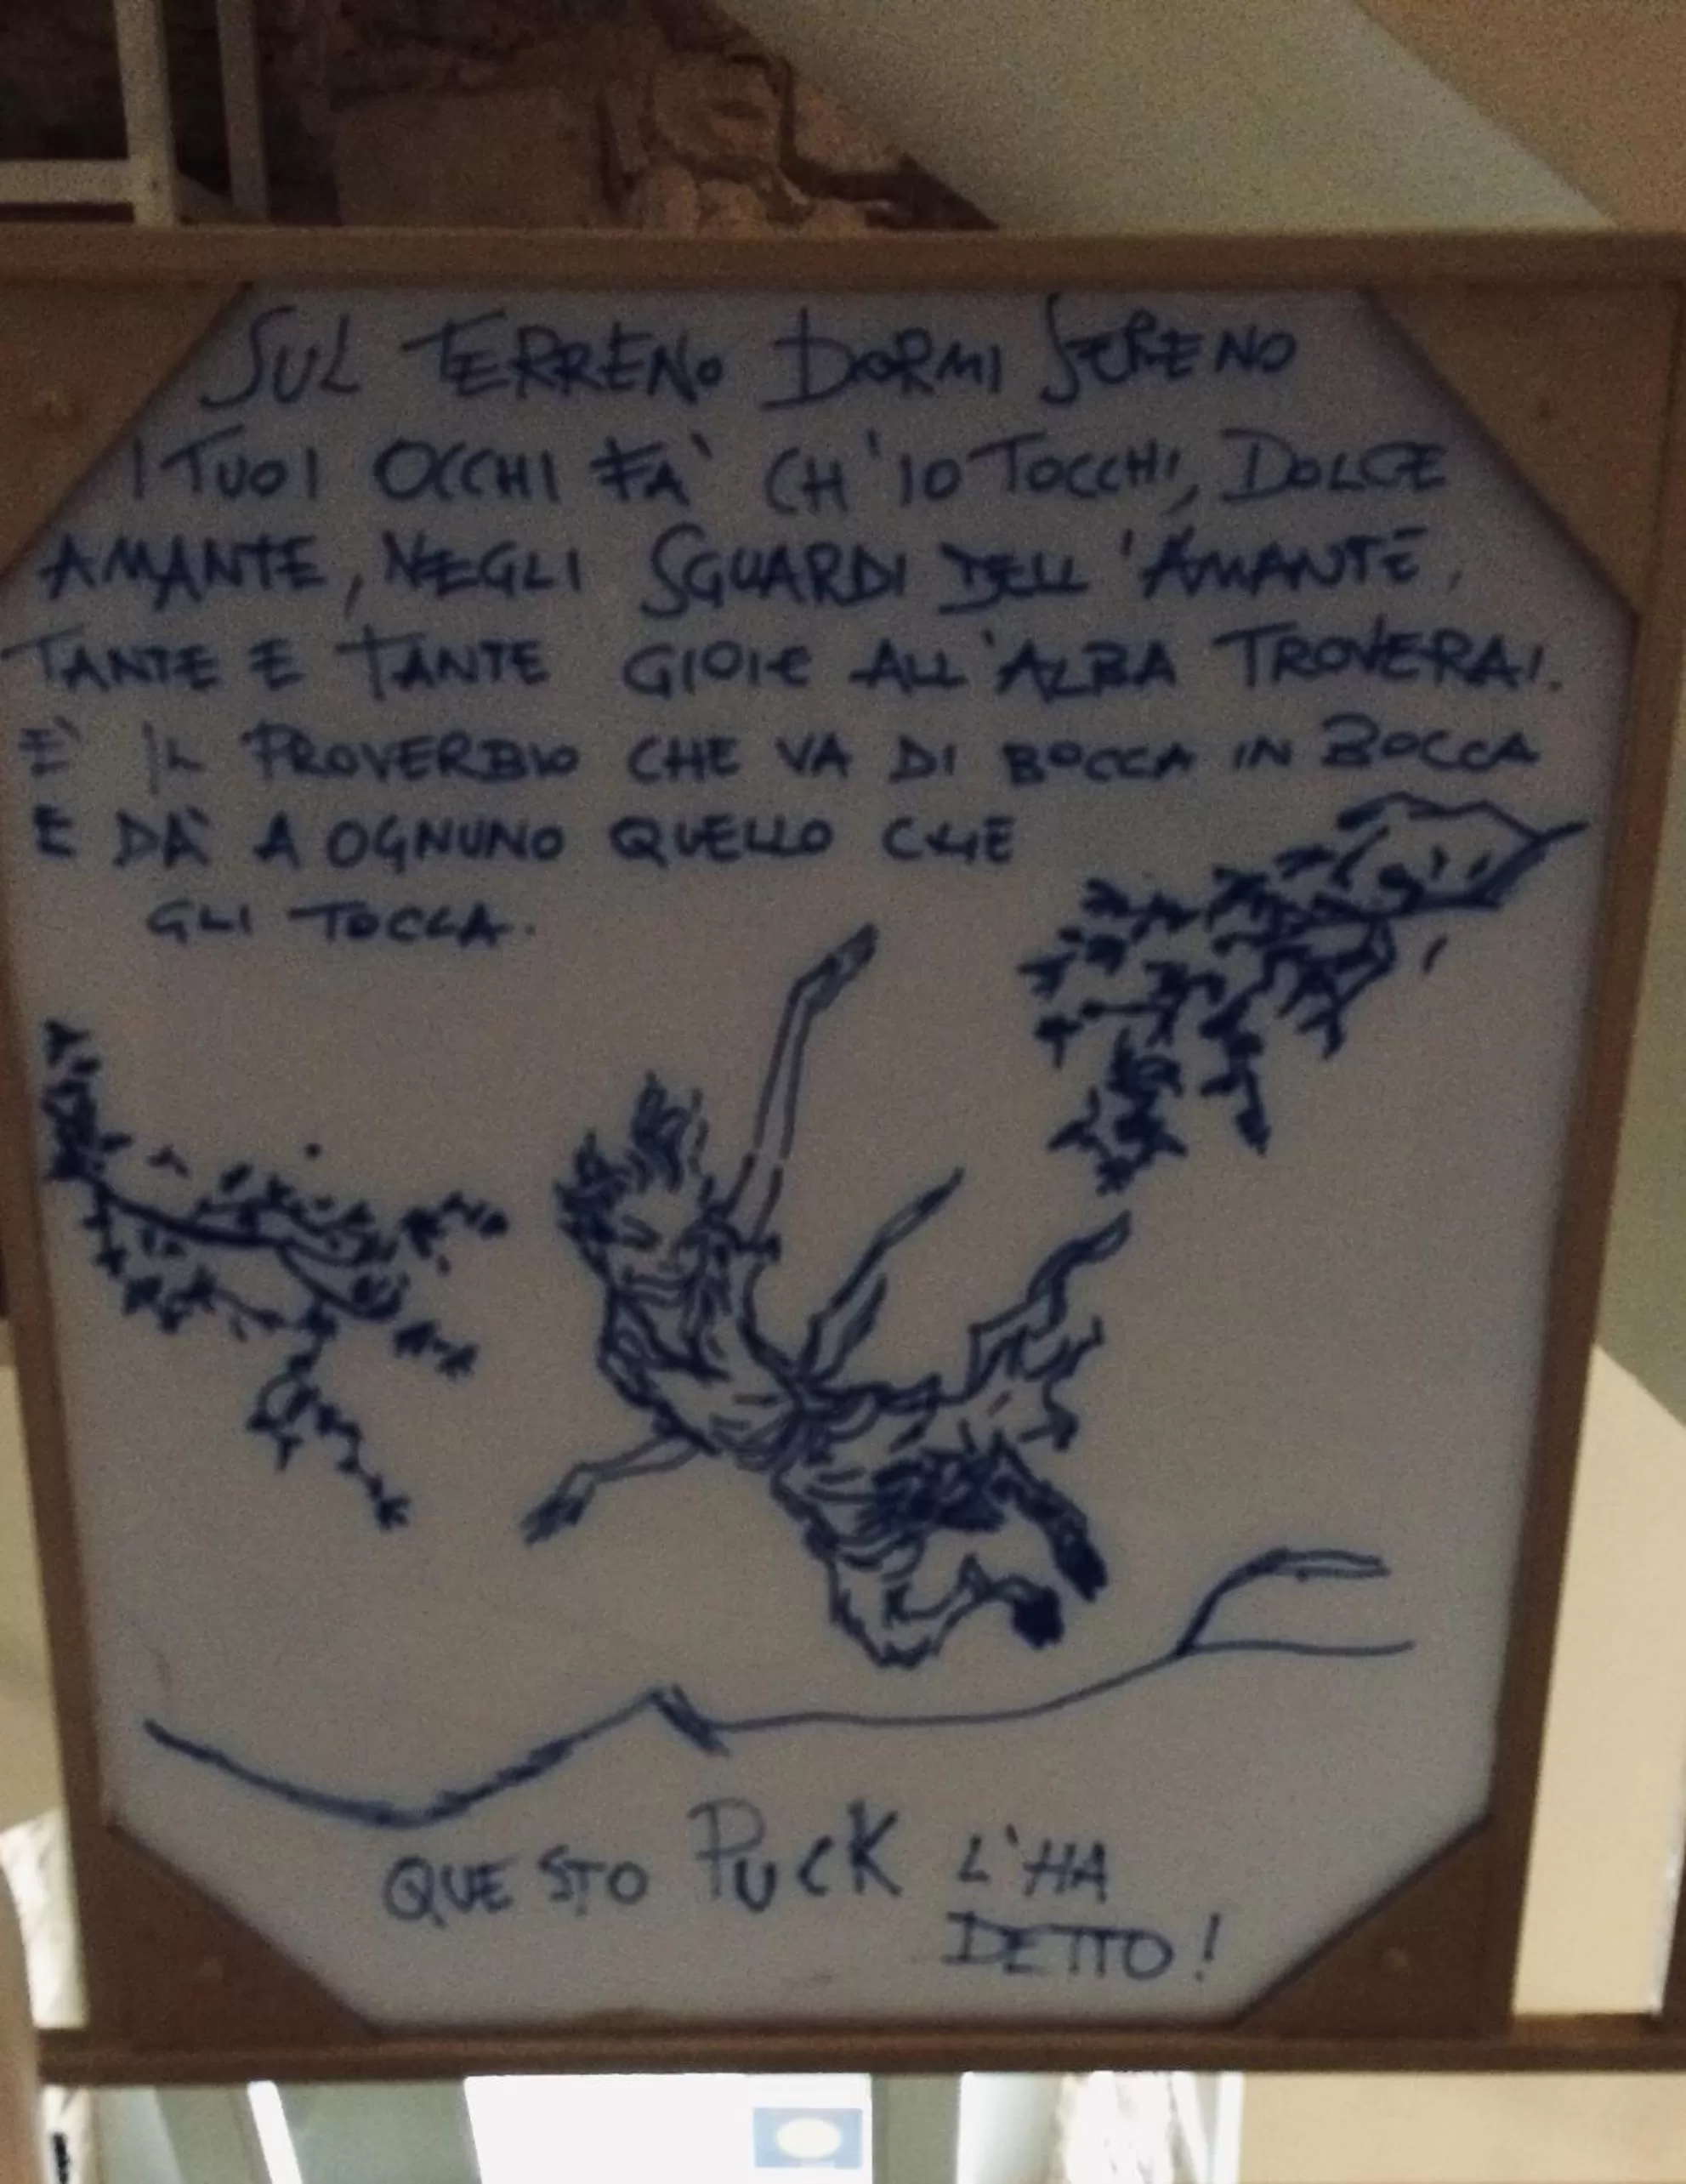 SUL TERRENO DORMI SERENO
I TUOI OCCHI FA' CH'IO TOCCHI, DOLCE
AMANTE, NEGLI SGUARDI DELL'AMANTE,
TANTE E TANTE GIOIE ALL'ALBA TROVERAI.
E' IL PROVERBIO CHE VA DI BOCCA IN BOCCA
E DÀ A OGNUNO QUELLO CHE
GLI TOCCA.
QUESTO PUCK L'HA
DETTO!